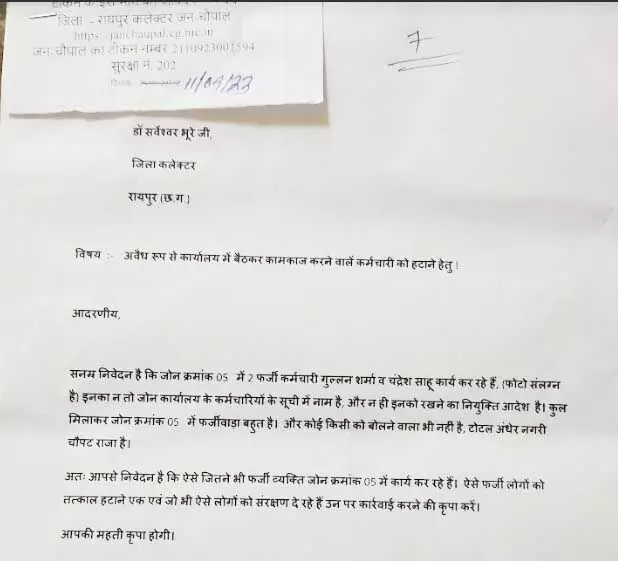 जिला - रायपुर कलेक्टर जन चौपाल
https://janchaupal.cg.nic.in
जन चौपाल का टोकन नम्बर 2110923001594
सुरक्षा नं. 202
11/09/23
7
डॉ सर्वेश्वर भूरे जी,
जिला कलेक्टर
रायपुर (छ.ग.)
विषय :- अवैध रूप से कार्यालय में बैठकर कामकाज करने वालें कर्मचारी को हटाने हेतु !
आदरणीय,
सनम्र निवेदन है कि जोन क्रमांक 05 में 2 फर्जी कर्मचारी गुल्लन शर्मा व चंद्रेश साहू कार्य कर रहे हैं, (फोटो संलग्न
है) इनका न तो जोन कार्यालय के कर्मचारियों के सूची में नाम है, और न ही इनको रखने का नियुक्ति आदेश है। कुल
मिलाकर जोन क्रमांक 05 में फर्जीवाड़ा बहुत है। और कोई किसी को बोलने वाला भी नहीं है, टोटल अंधेर नगरी
चौपट राजा है।
अतः आपसे निवेदन है कि ऐसे जितने भी फर्जी व्यक्ति जोन क्रमांक 05 में कार्य कर रहे हैं। ऐसे फर्जी लोगों को
तत्काल हटाने एक एवं जो भी ऐसे लोगों को संरक्षण दे रहे हैं उन पर कार्रवाई करने की कृपा करें।
आपकी महती कृपा होगी।